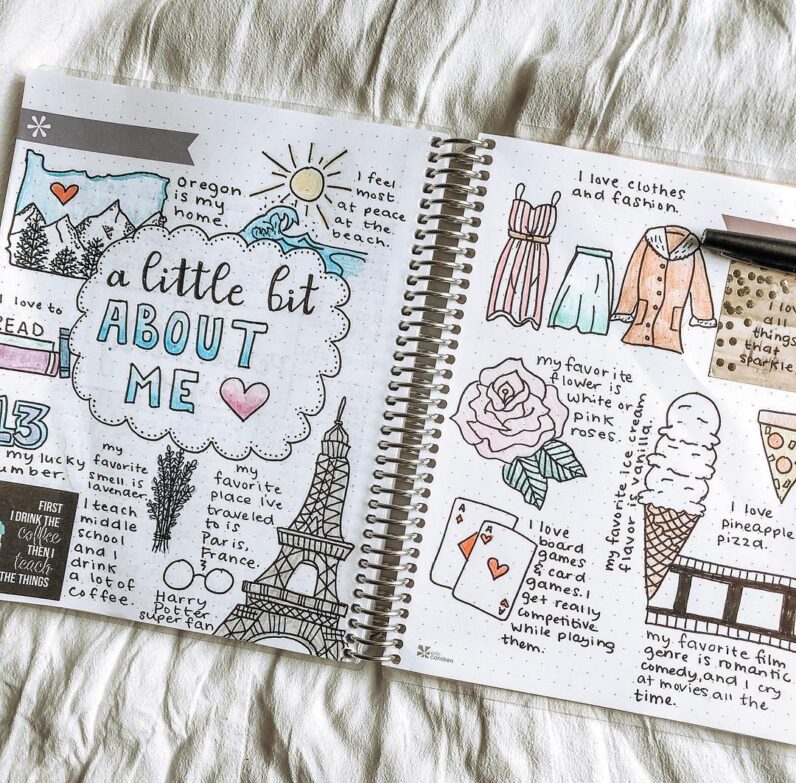 Oregon
is my
home.
I feel
most
at peace
at the
beach.
a little bit
ABOUT
ME
I love to
READ
13
my lucky
number.
my
favorite
smell is
lavender.
my
favorite
place I've
traveled
to is
Paris,
France.
FIRST
I DRINK THE
coffee
THEN I
teach
THE THINGS
I teach
middle
school
and I
drink
a lot of
coffee.
Harry
Potter
super fan
I love clothes
and fashion.
I love
all
things
that
sparkle
my favorite
flower is
white or
pink
roses.
my favorite ice cream
flavor is vanilla.
I love
pineapple
pizza.
A
A
A
I love
board
games
& card
games. I
get really
competitive
while playing
them.
my favorite film
genre is romantic
comedy, and I cry
at movies all the
time.
erin
condren